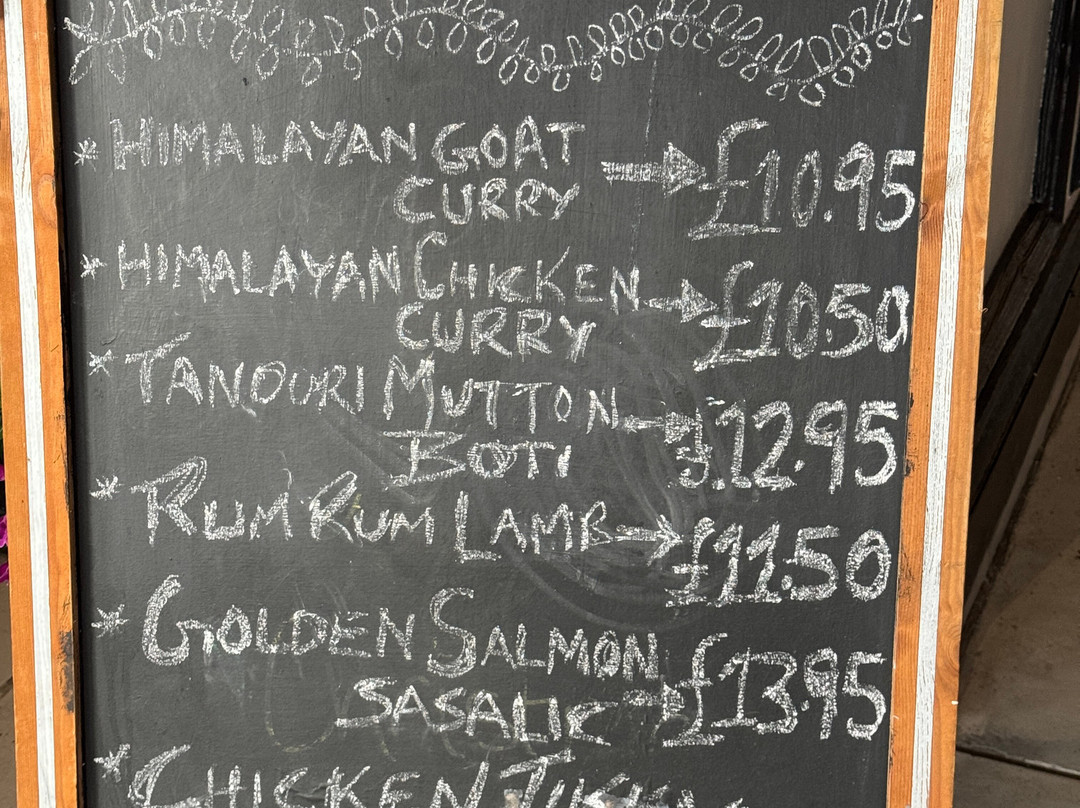 * HIMALAYAN GOAT
CURRY → £10.95
* HIMALAYAN CHICKEN
CURRY → £10.50
* TANOURI MUTTON
BOTI → £12.95
* RUM RUM LAMB → £11.50
* GOLDEN SALMON
SASALIC → £13.95
* CHICKEN